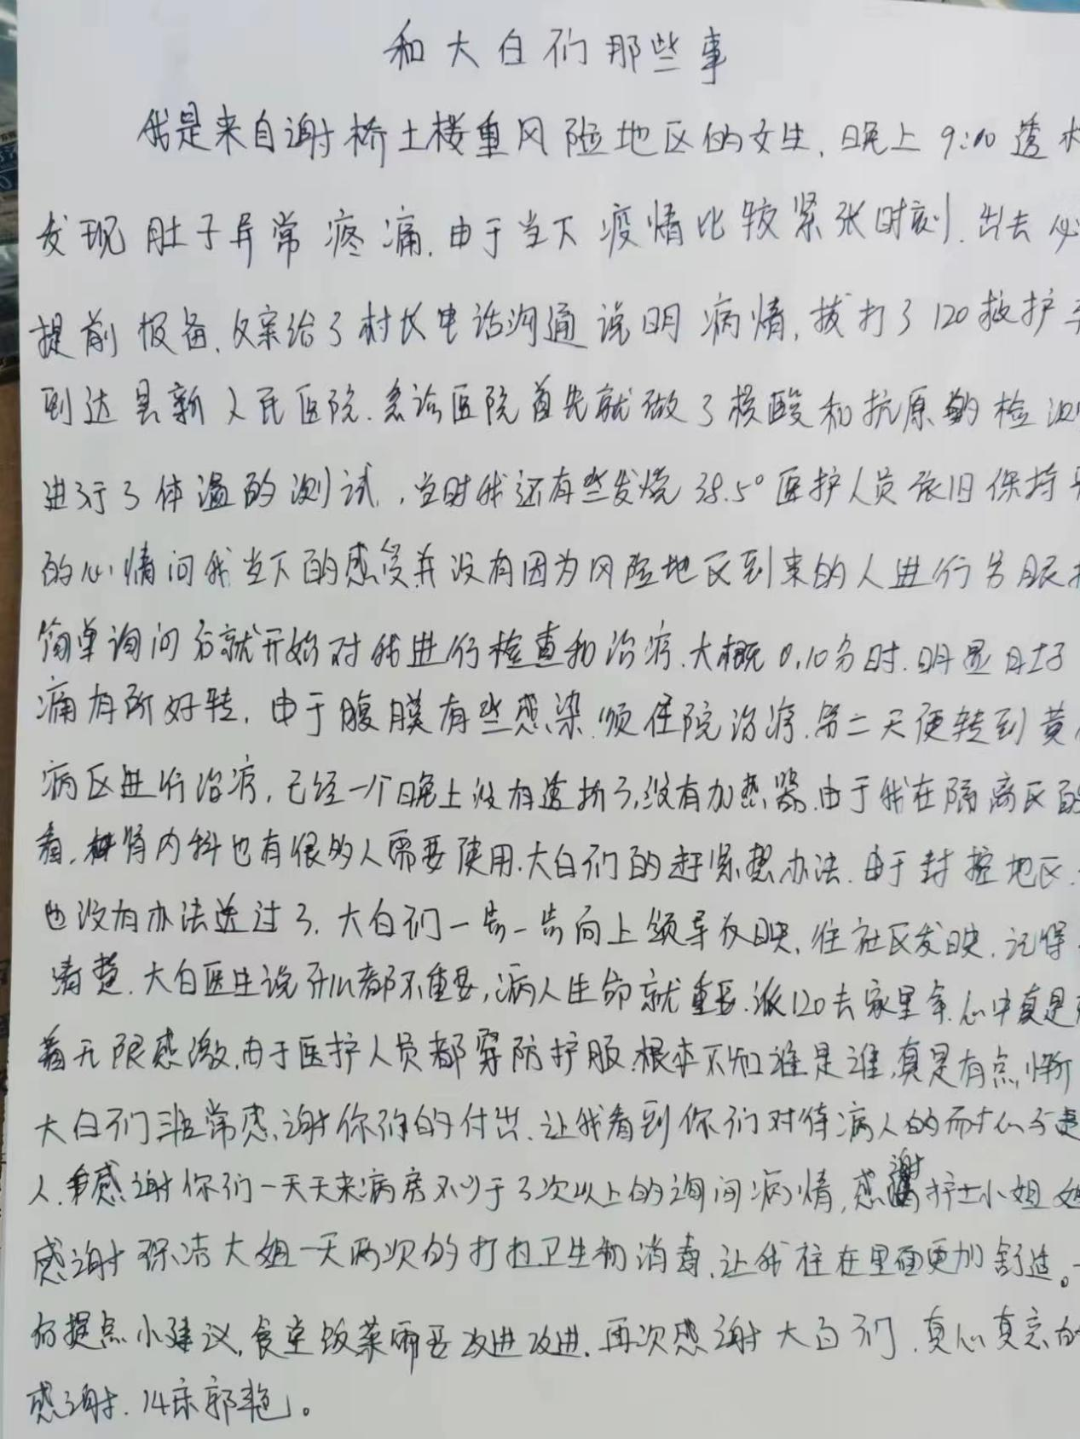 和大白们那些事
我是来自谢桥土楼重风险地区的女生,晚上9:00透
发现肚子异常疼痛.由于当下疫情比较紧张时刻.出去必
提前报备.父亲给了村长电话沟通说明病情,拔打了120救护
到达县新人民医院.急诊医院首先就做了核酸和抗原的检测
进行了体温的测试,当时我还有些发烧38.5°医护人员依旧保持
的心情问我当下的感受并没有因为风险地区到来的人进行另眼
简单询问后就开始对我进行检查和治疗.大概0.10分时.明显肚子
痛有所好转.由于腹膜有些感染.须住院治疗.第二天便转到黄
病区进行治疗,已经一个晚上没有透析了,没有加热器.由于我在隔离区
着,肾内科也有很多人需要使用.大白们的赶紧想办法.由于封控地区.
也没有办法送过了.大白们一步一步向上领导反映,住社区发映.记得
清楚.大白医生说什么都不重要,病人生命就重要.派120去家里拿.心中真是
着无限感激.由于医护人员都穿防护服.根本不知谁是谁,真是有点
大白们非常感谢你们的付出.让我看到你们对待病人的耐心
人.感谢你们一天天来病房不少于3次以上的询问病情,感谢护士小姐
感谢保洁大姐一天两次的打扫卫生和消毒,让我住在里面更加舒适。
的提点小建议,食堂饭菜需要改进改进.再次感谢大白们,真心真意的
感谢.14床郭艳。